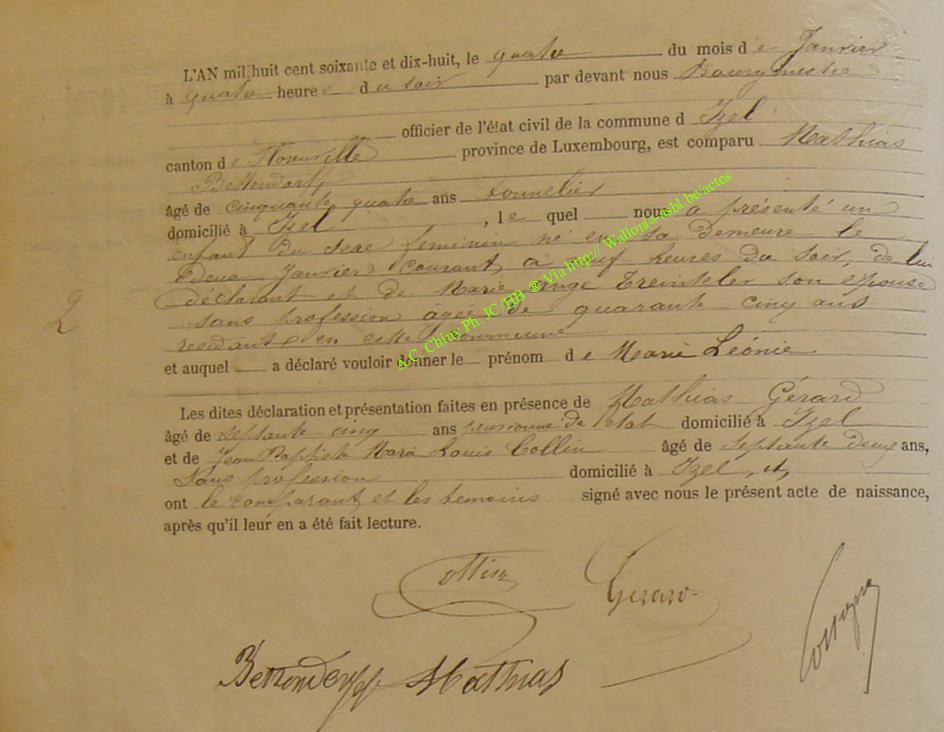 L'AN mil huit cent soixante et dix-huit, le quatre du mois de Janvier
à quatre heures du soir par devant nous Bourgmestre
officier de l'état civil de la commune d Izel
canton de Florenville province de Luxembourg, est comparu Mathias
Bettendorff
âgé de cinquante quatre ans tonnelier
domicilié à Izel, le quel nous a présenté un
enfant du sexe feminin né en sa demeure le
deux Janvier courant, à neuf heures du soir, de lui
déclarant et de Marie Ange Treinteler son épouse
sans profession âgée de quarante cinq ans
2
residant en cette commune
et auquel a déclaré vouloir donner le prénom de Marie Léonie
Les dites déclaration et présentation faites en présence de Mathias Gérard
âgé de septante cinq ans pensionné de l'état domicilié à Izel
et de Jean Baptiste Marie Louis Collin âgé de septante deux ans,
sans profession domicilié à Izel, et,
ont le comparant et les temoins signé avec nous le présent acte de naissance,
après qu'il leur en a été fait lecture.
A.C. Chiny Ph. JC/HB ®Via http://Wallonia-asbl.be/actes
Collin Gerard
Bettendorff Mathias